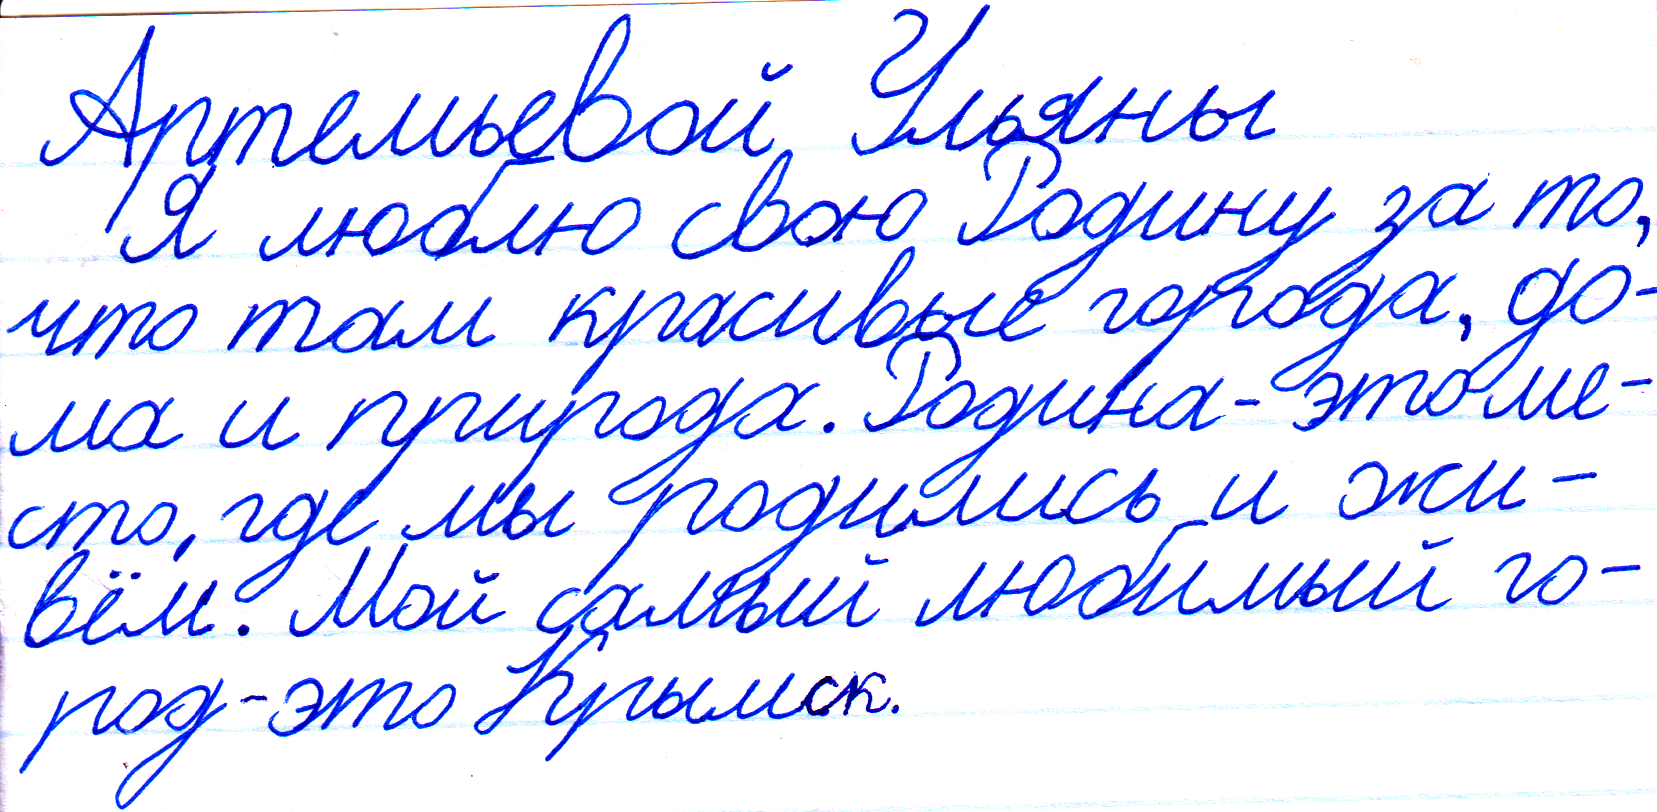 Артемьевой Ульяны
Я люблю свою Родину за то,
что там красивые города, до-
ма и природа. Родина-это ме-
сто, где мы родились и жи-
вём. Мой самый любимый го-
род-это Крымск.